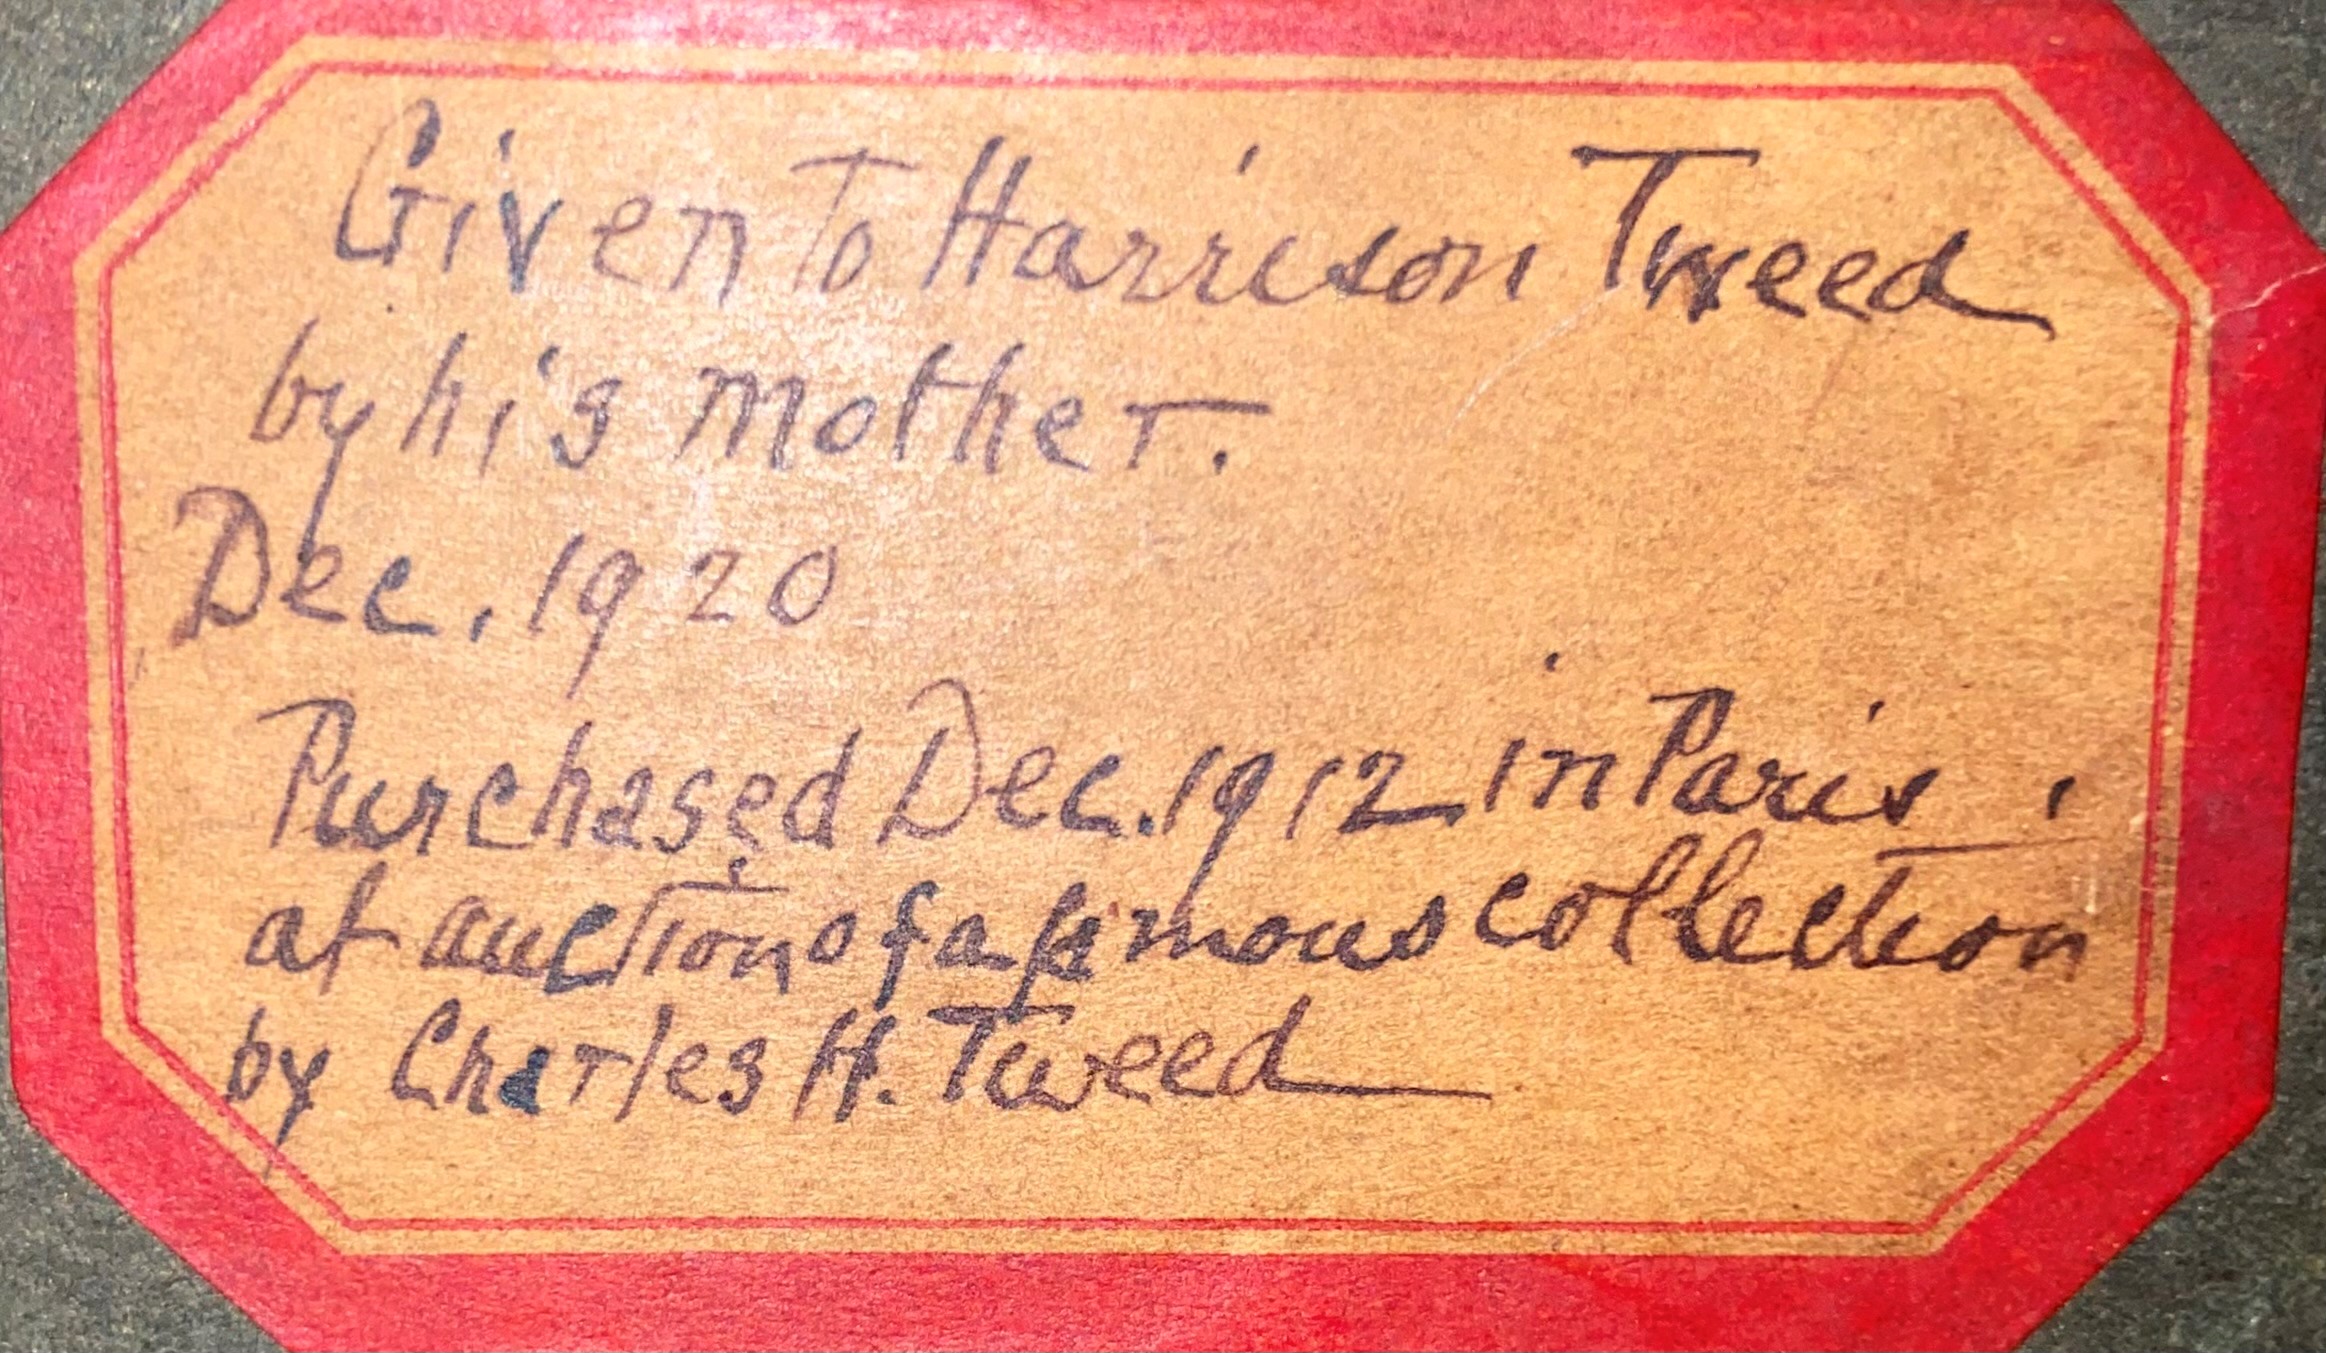 Given To Harrison Tweed
by his mother.
Dec. 1920
Purchased Dec. 1912 in Paris.
at auction of a famous collection
by Charles H. Tweed